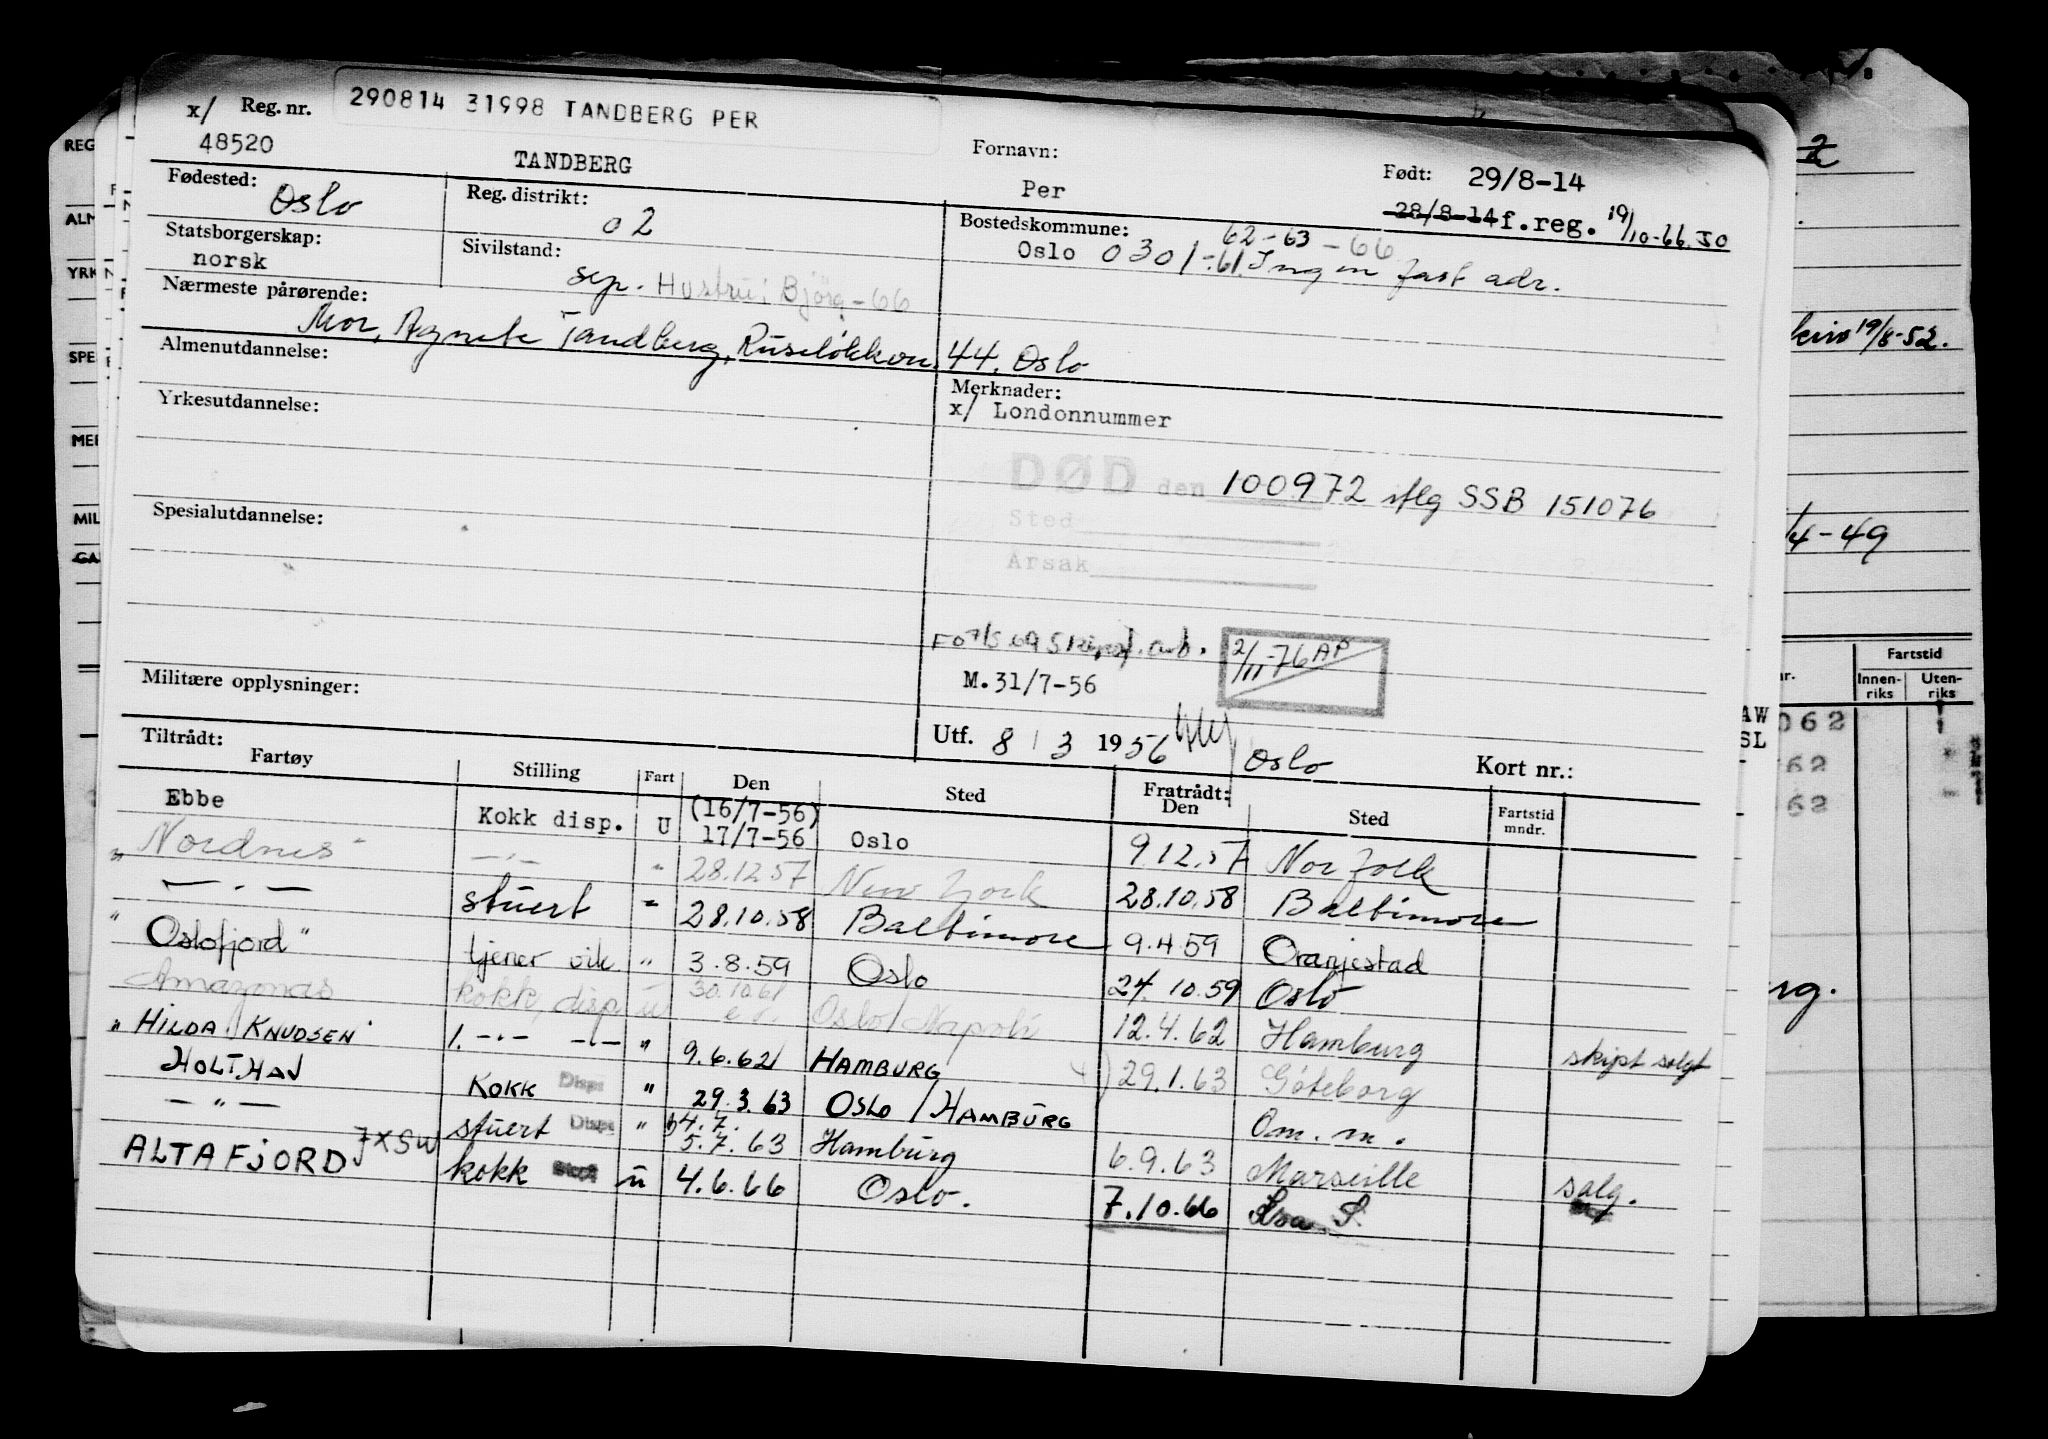 x/ Reg. nr. 290814 31998 TANDBERG PER
48520 TANDBERG Fornavn: Per Født: 29/8-14
28/8-14 f.reg. 19/10-66 JO
Fødested: Oslo Reg. distrikt: 02 Bostedskommune: 62-63-66
Oslo 0301 -61 Ingen fast adr.
Statsborgerskap: norsk Sivilstand: sep. Hustru: Bjørg -66
Nærmeste pårørende:
Mor, Agnete Tandberg, Ruseløkkvn. 44, Oslo
Almenutdannelse: Merknader:
x/ Londonnummer
Yrkesutdannelse:
DØD den 100972 iflg SSB 151076
Spesialutdannelse: Sted
Årsak
2/11-76 AP
M.31/7-56
Militære opplysninger:
Utf. 8/3 1956 Oslo Kort nr.:
Tiltrådt: Fratrådt:
Fartøy Stilling Fart Den Sted Den Sted Fartstid mndr.
Ebbe Kokk disp. U (16/7-56) 17/7-56 Oslo 9.12.57 Norfolk
"Nordnes" —"— " 28.12.57 New York 28.10.58 Baltimore
—"— stuert " 28.10.58 Baltimore 9.4.59 Oranjestad
"Oslofjord" tjener vik. " 3.8.59 Oslo 24.10.59 Oslo
Amazonas kokk, disp u 30.10.61 Oslo/Napoli 12.4.62 Hamburg
"HILDA KNUDSEN" 1. —"— —"— " 9.6.62 HAMBURG 29.1.63 Göteborg skipt solgt
HOLTHAV KOKK Disps " 29.3.63 OSLO/HAMBURG Om. m.
—"— stuert Disps " 4.7. 5.7.63 Hamburg 6.9.63 Marseille
ALTAFJORD JXSW kokk u 4.6.66 Oslo. 7.10.66 salg.
REG
ALM
YRK
SPE
MEI
MIL
GA
19/6-52.
/4-49
Fartstid
Innen-riks Uten-riks
AW 062
SL
62
62
rg.